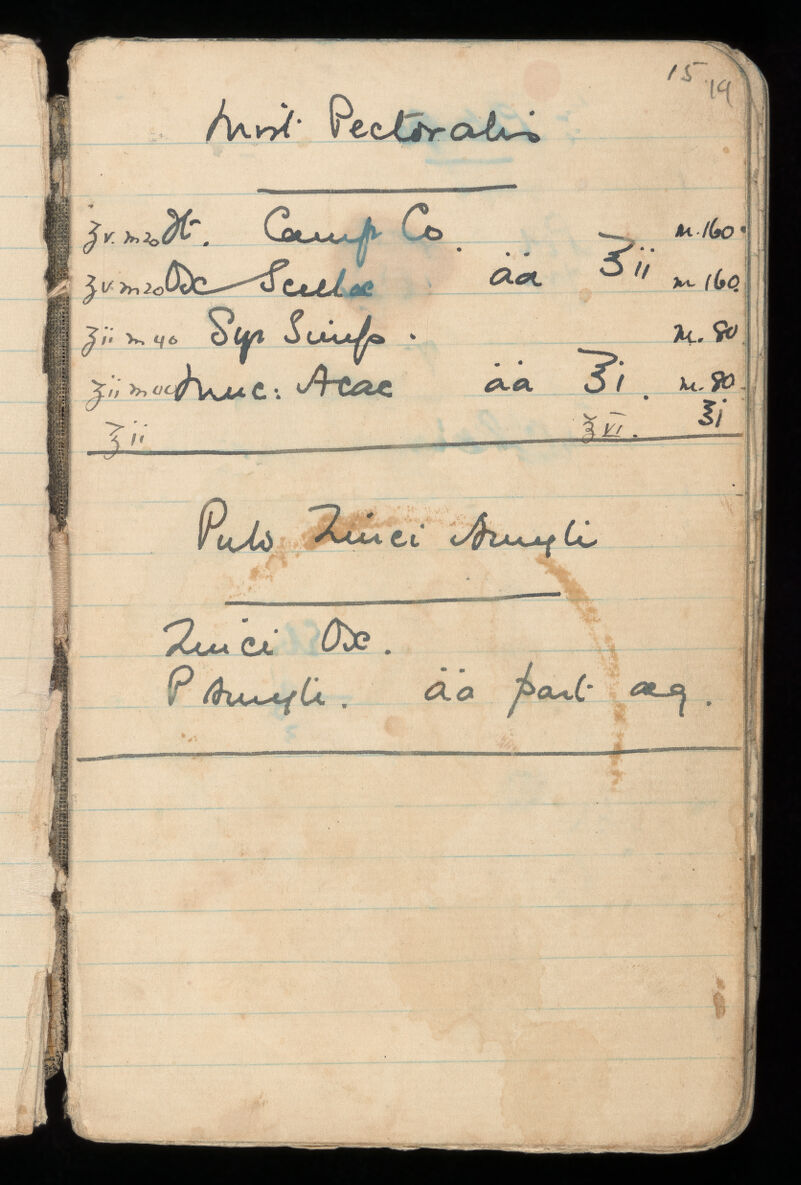 15 19
Mist Pectoralis
ʒv. m20 Tt. Camp Co. m. 160.
ʒv. m20 Ox Scillae āā ℥ii m 160.
ʒii m 40 Syr Simp. m. 80
ʒii m 40 Muc: Acac āā ℥i. m. 80
℥ii ℥VI. ℥i
Pulv Zinci Amyli
Zinci Ox.
P Amyli. āā part aeq.